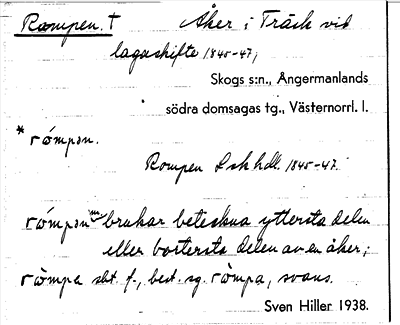 Rompen. † Åker i Träsk vid
lagaskifte 1845-47;
Skogs s:n., Ångermanlands
södra domsagas tg., Västernorrl. l.
* rómpan.
Rompen L sk hdl. 1845-47.
rómpan brukar beteckna yttersta delen
eller bortersta delen av en åker;
ròmpa sbt. f., best. sg. ròmpa, svans.
Sven Hiller 1938.